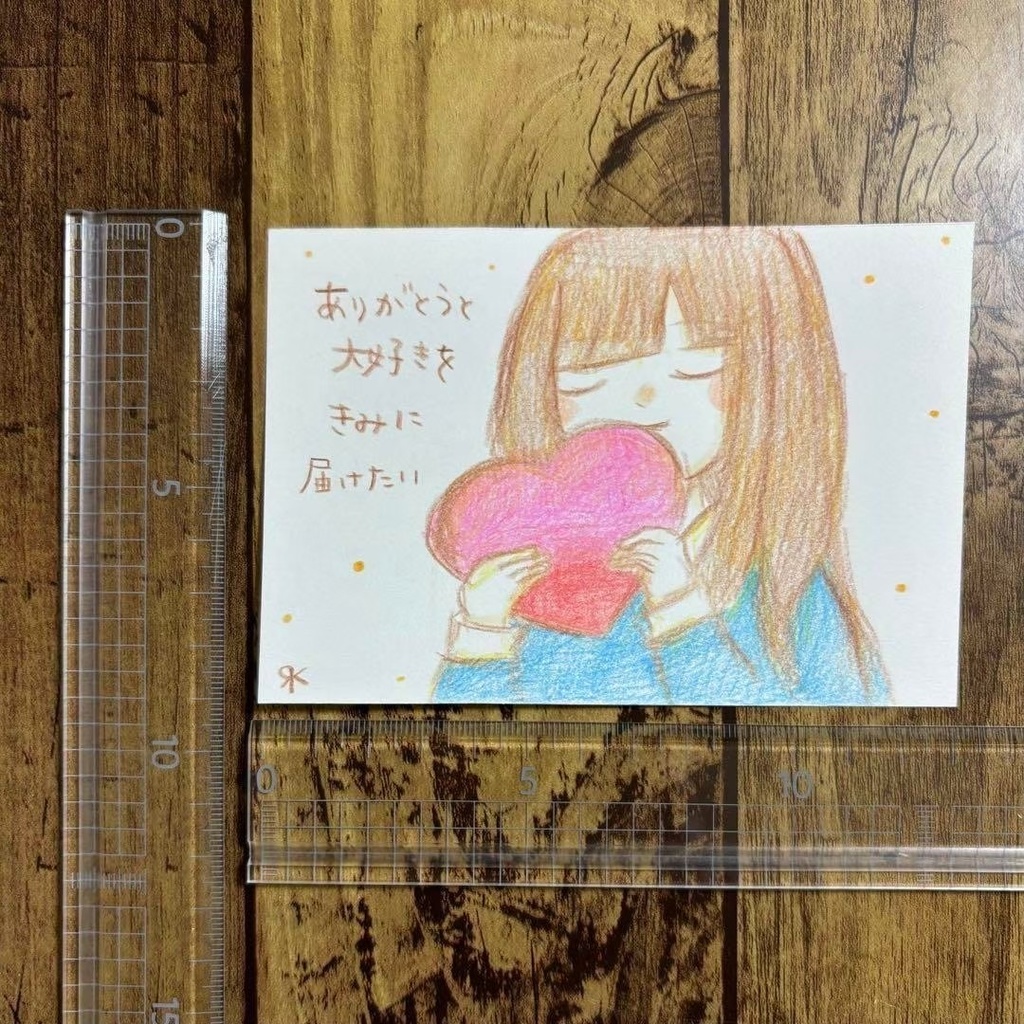 ありがとうと
大好きを
きみに
届けたい
RK
0
5
10
15
0
5
10